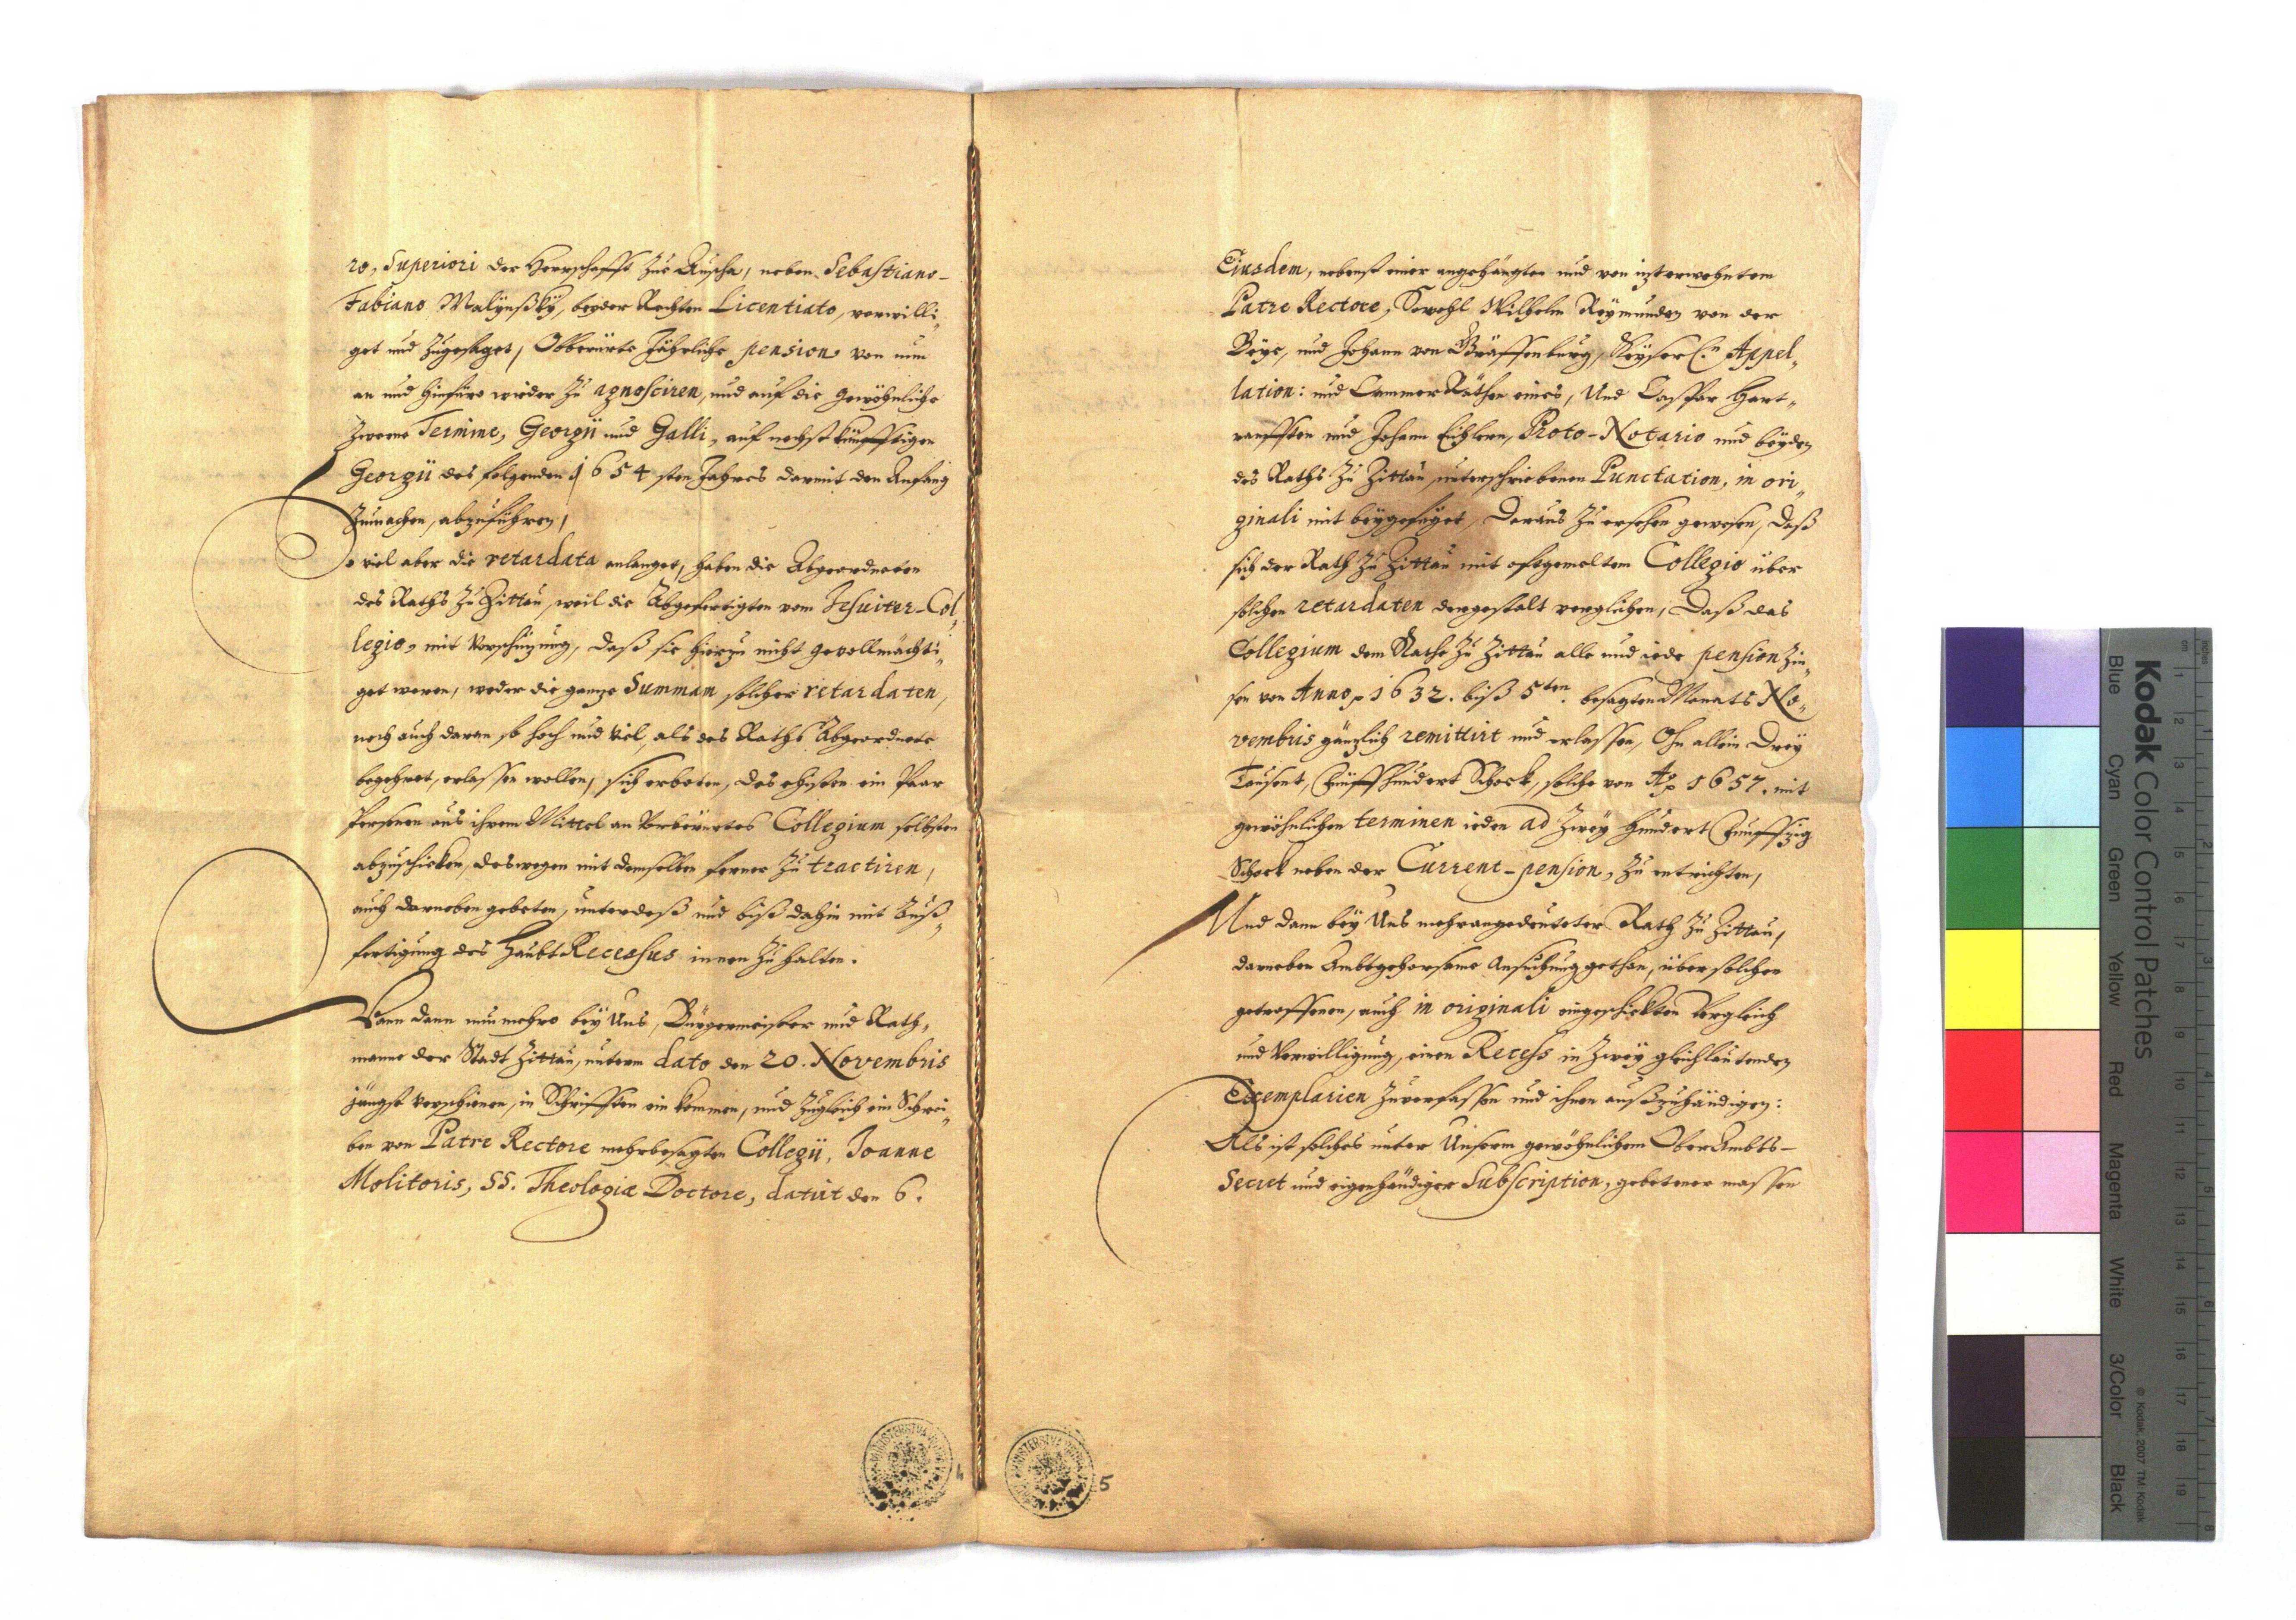 ro, Superiori der Herrschafft zur Auscha, neben Sebastiano-
Fabiano Malynßky, beyder Rechten Licentiato, verwilli„
get und zugesaget, Obberürte Jährliche pension von nun
an und hinfüro wieder zu agnosciren, und auf die gewöhnliche
zweene Termine, Georgii und Galli, auf nechst künfftigen
Georgii des folgenden 1654 sten Jahres darmit den Anfang
zumachen, abzuführen,
So viel aber die retardata anlanget, haben die Abgeordneten
des Raths zu Zittau, weil die Abgefertigten vom Jesuiter-Col„
legio, mit Vorschüzung, daß sie hierzu nicht gevollmächti„
get weren, weder die ganze Summam solcher retardaten,
noch auch daran so hoch und viel, als des Raths Abgeordnete
begehret, erlassen wollen, sich erboten, des ehisten ein Paar
Personen aus ihrem Mittel an Vorberürtes Collegium selbsten
abzuschicken, deswegen mit demselben ferner zu tractiren,
auch darneben gebeten, unterdeß und biß dahin mit Auß„
fertigung des Haubt Recessus innen zu halten.
Wann dann nunmehro bey Uns, Bürgermeister und Rath„
manne der Stadt Zittau, unterm dato den 20. Novembris
jüngst verschienen, in Schrifften ein kommen, und zugleich ein Schrei„
ben von Patre Rectore mehrbesagten Collegii, Joanne
Molitoris, SS. Theologiæ Doctore, datirt den 6.
4
Eiusdem, nebenst einer angehängten und von iztерwehntem
Patre Rectore, Sowohl Wilhelm Reymunden von der
und Johann von Gräffenburg, Keyser(n Appel„
lation: und Cammer Räthen eines, Und Caspar Hart„
ranfften und Johann Eichlern, Proto-Notario und beyden
des Raths zu Zittau, unterschriebenen Punctation, in ori„
ginali mit beygefüget, Daraus zu ersehen gewesen, daß
sich der Rath zu Zittau mit oftgemeltem Collegio über
solchen retardaten dergestalt verglichen, Daß das
Collegium dem Rathe zu Zittau alle und iede pension Zin„
sen von Anno 1632. biß 5ten. besagten Monats No„
vembris gänzlich remittirt und erlassen, Ohn allein Drey
Tausent, Fünffhundert Schock, solche von Ao 1657. mit
gewöhnlichen terminen ieden ad Zwey hundert Funffzig
Schock neben der Current-pension, zu entrichten,
Und dann bey Uns mehrangedeuteter Rath zu Zittau,
darneben Ambtgehorsame Ansuchung gethan, über solchen
getroffenen, auch in originali eingeschickten Vergleich
und Verwilligung, einen Recess in Zwey gleichlautenden
Exemplarien zuverfassen und ihnen außzuhändigen:
Als ist solches unter Unserm gewöhnlichem Ober Ambts-
Secret und eigenhändiger Subscription, gebetener massen
5
Kodak Color Control Patches
Blue Cyan Green Yellow Red Magenta White 3/Color Black
© Kodak, 2007 TM: Kodak
inches 1 2 3 4 5 6 7 8
cm 1 2 3 4 5 6 7 8 9 10 11 12 13 14 15 16 17 18 19